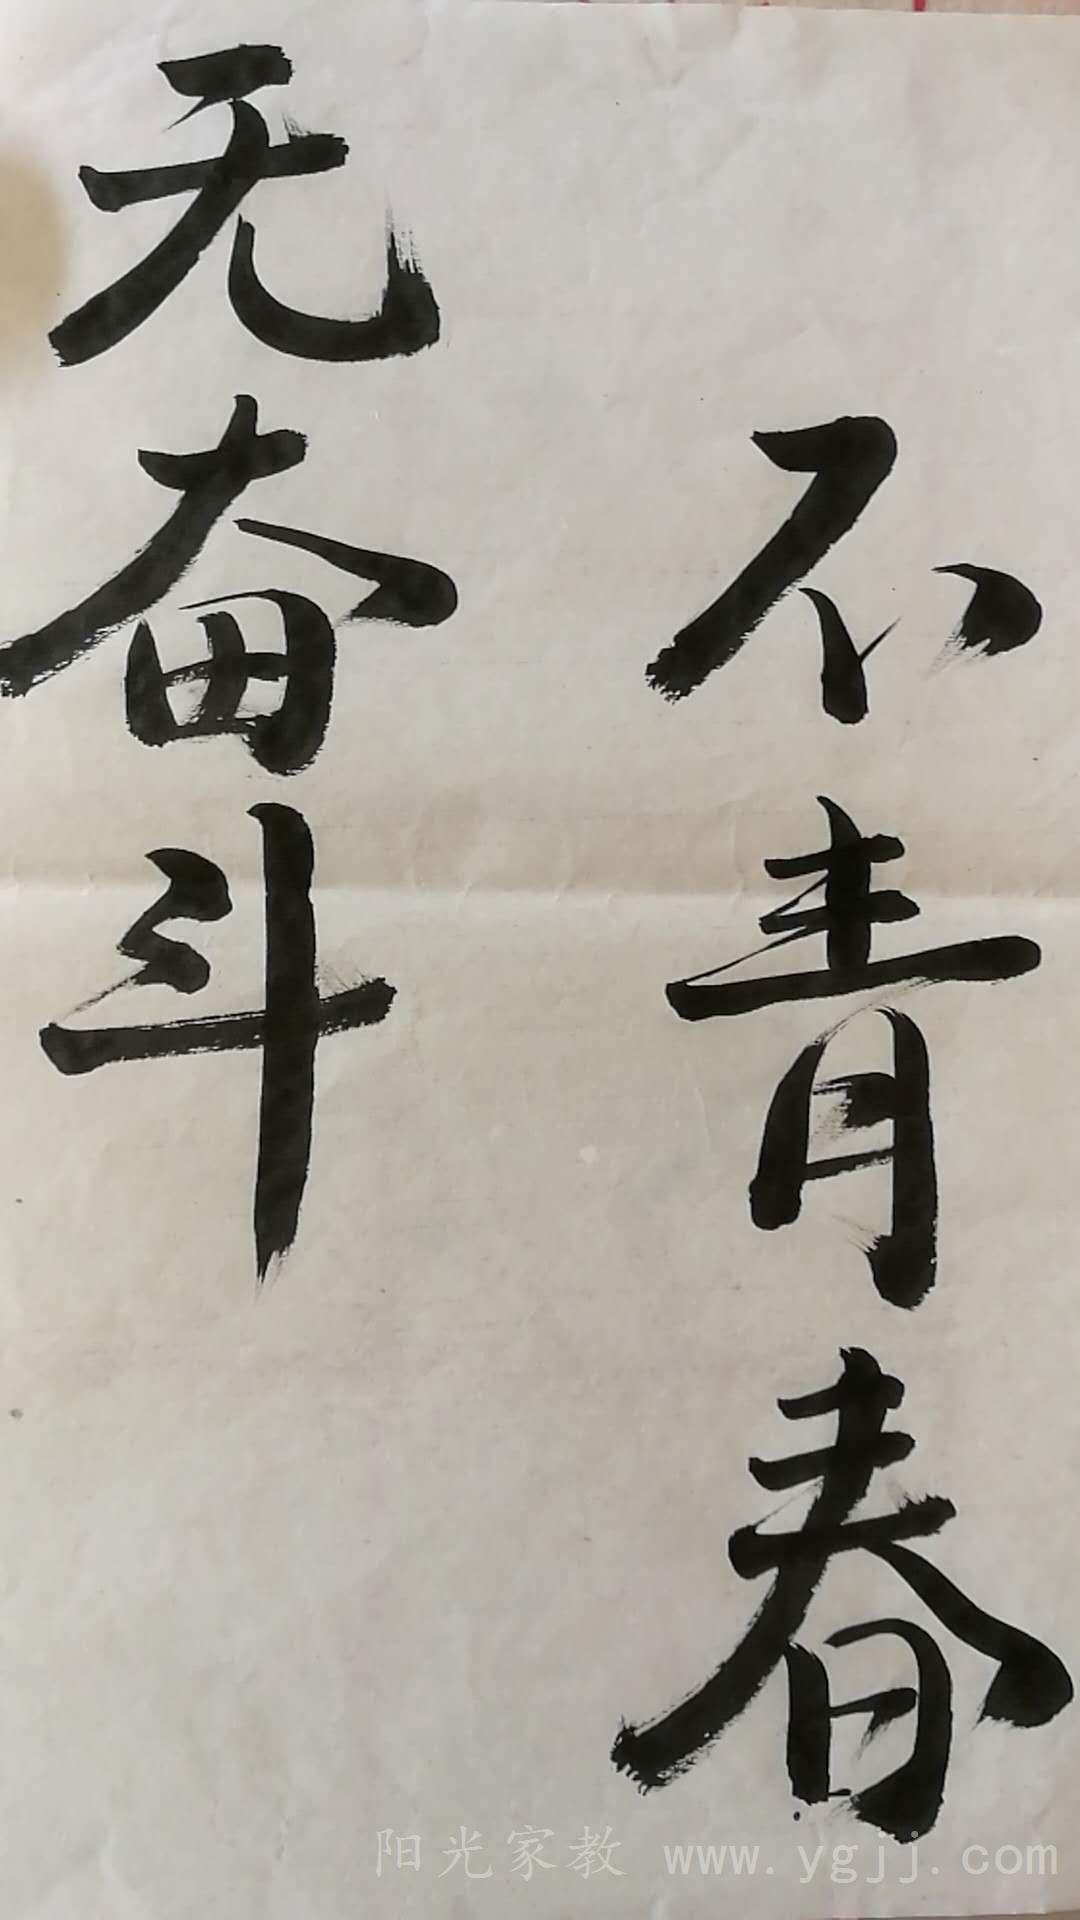 无奋斗
不青春
阳光家教 www.ygjj.com